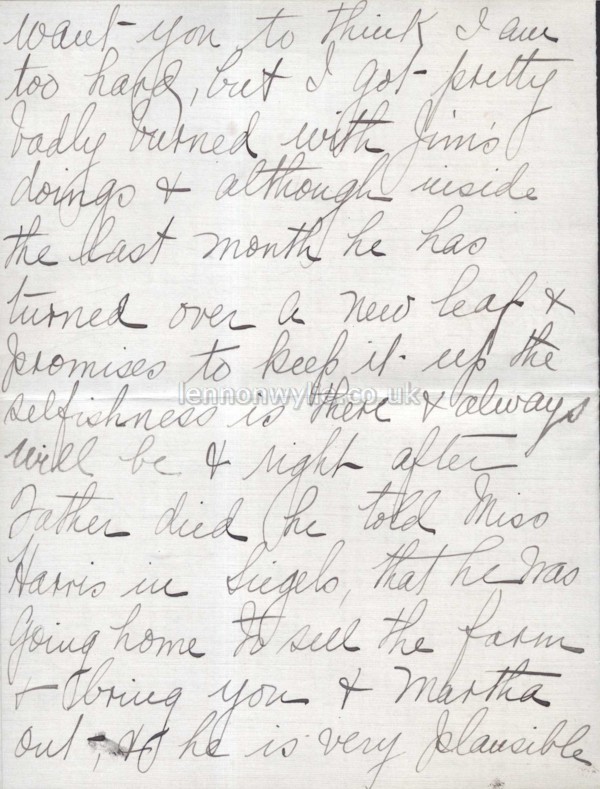 want you to think I am
too hard, but I got pretty
badly burned with Jim's
doings & although inside
the last month he has
turned over a new leaf &
promises to keep it up the
lennonwylie.co.uk
selfishness is there & always
will be & right after
Father died he told Miss
Harris in Siegels, that he was
going home to sell the farm
& bring you & Martha
out, & he is very plausible